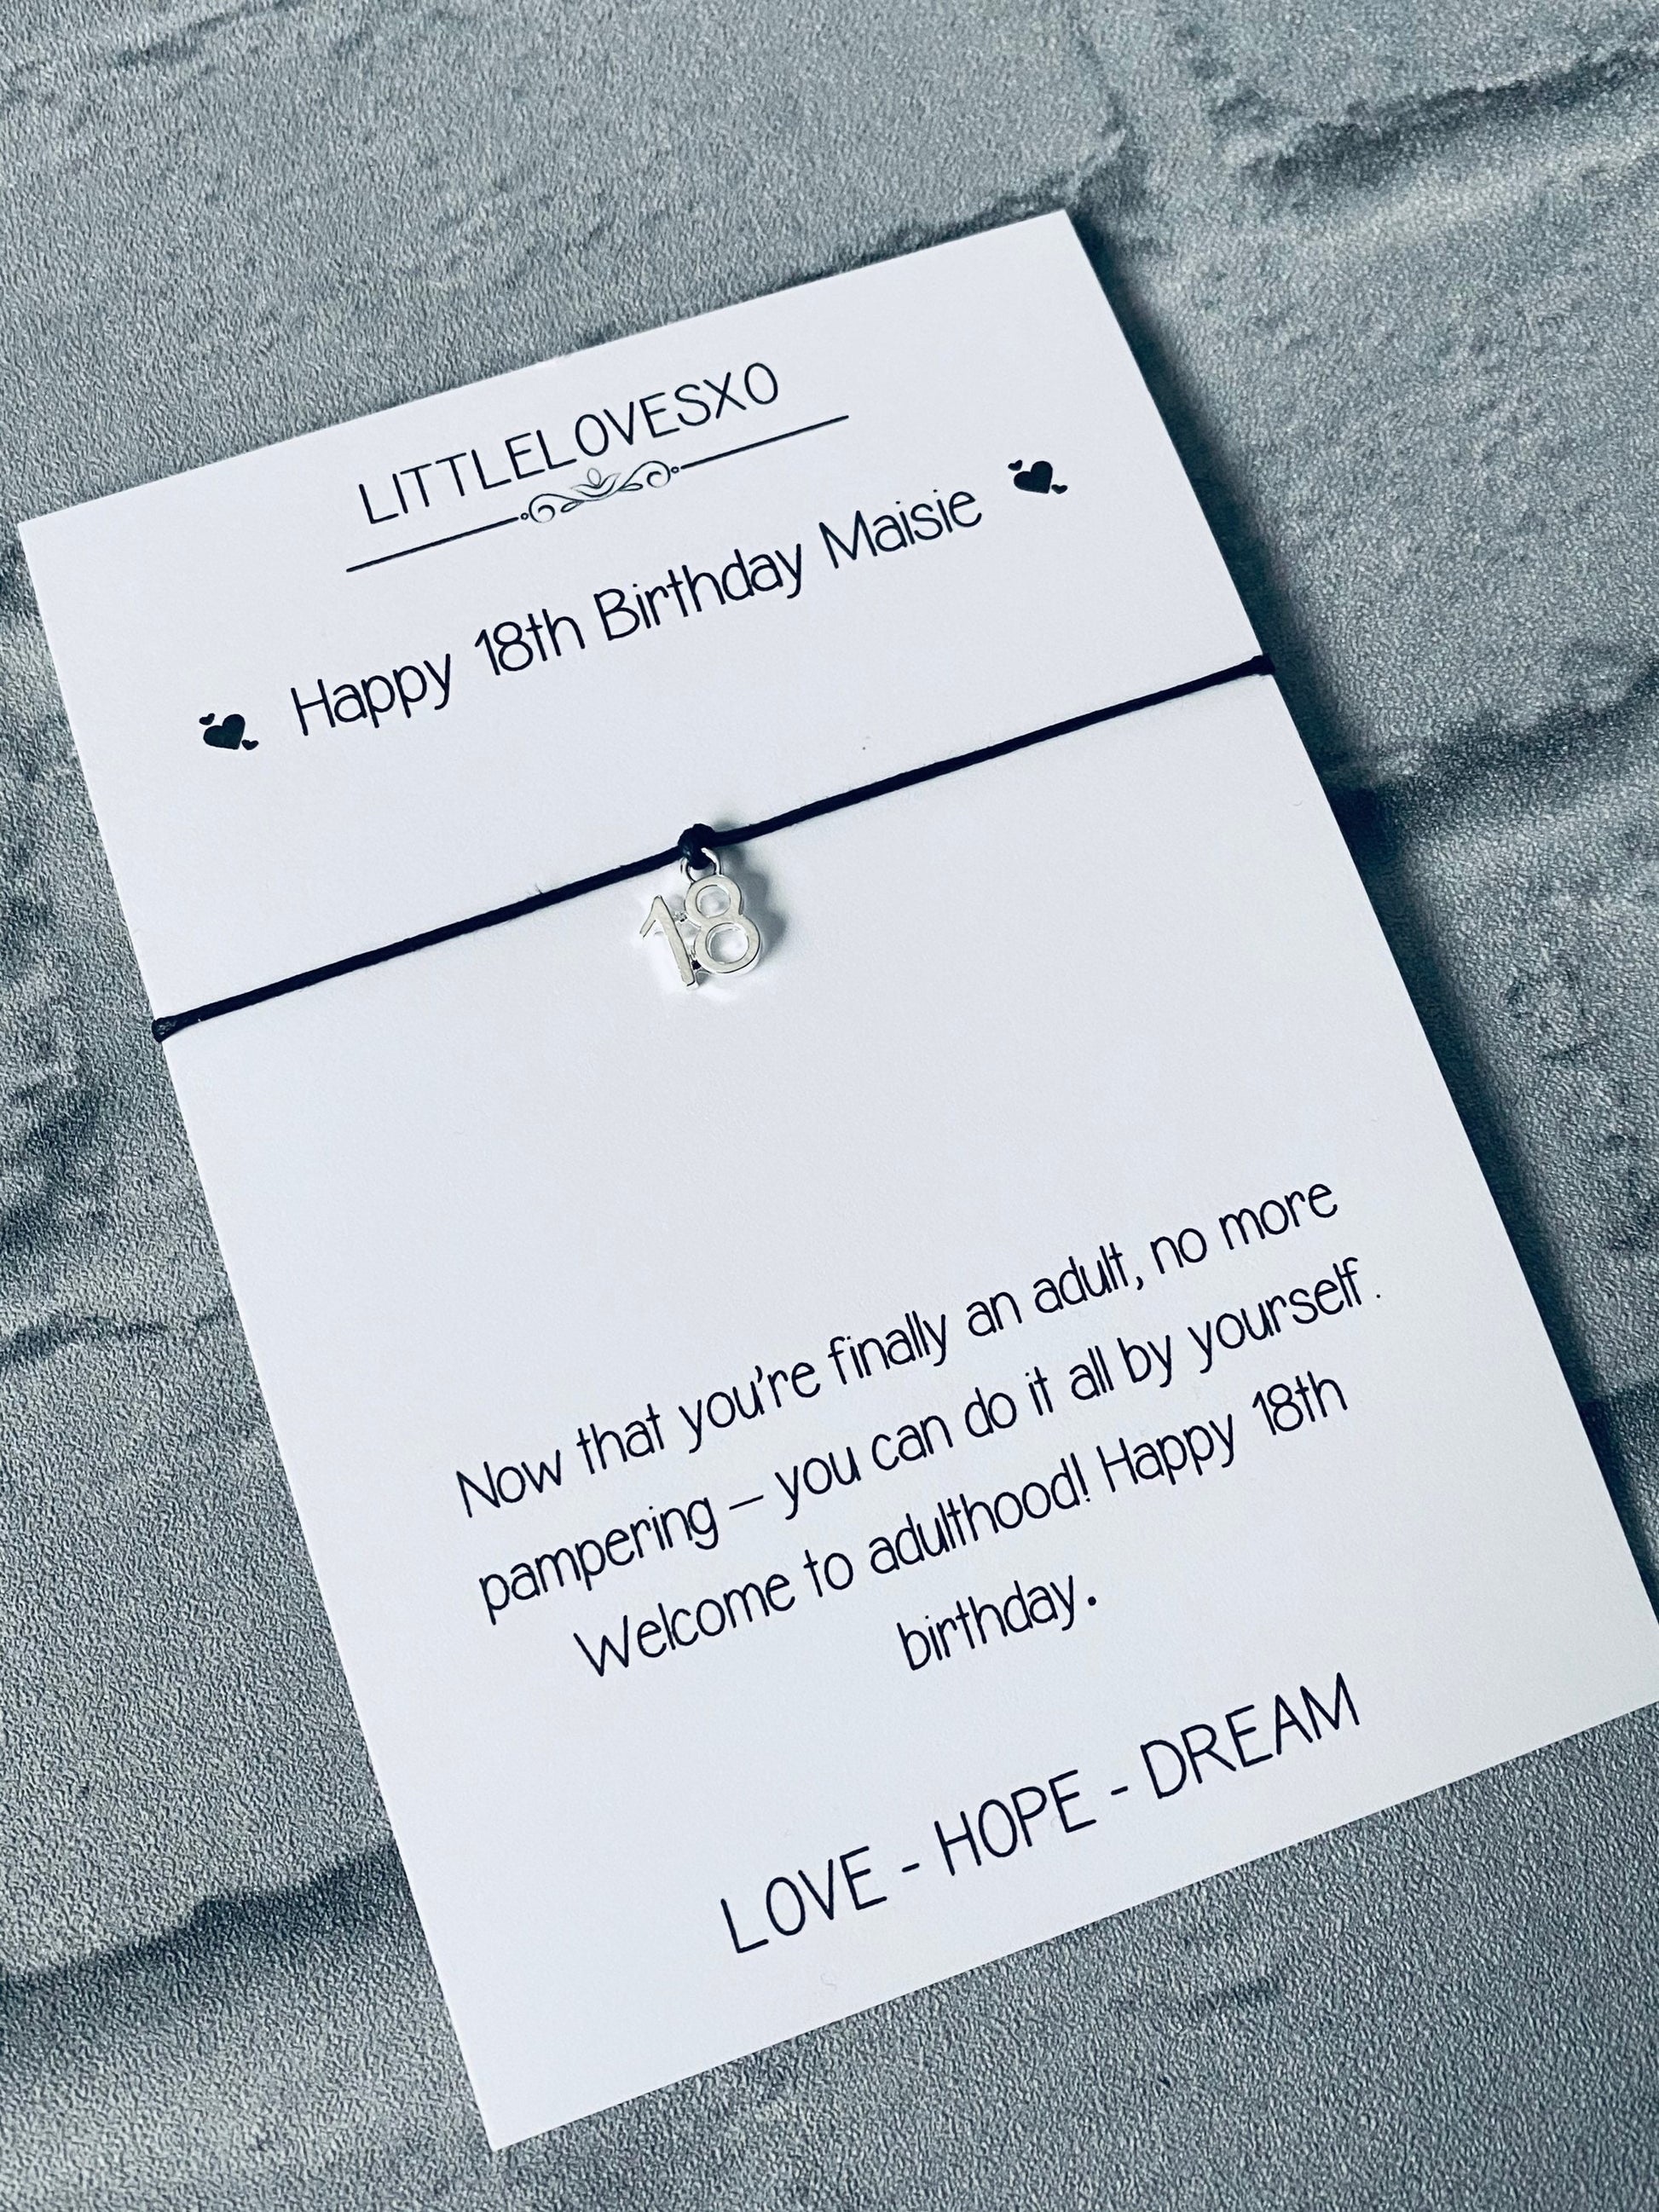 LITTLELOVESXO
Happy 18th Birthday Maisie
18
Now that you're finally an adult, no more
pampering – you can do it all by yourself.
Welcome to adulthood! Happy 18th
birthday.
LOVE - HOPE - DREAM